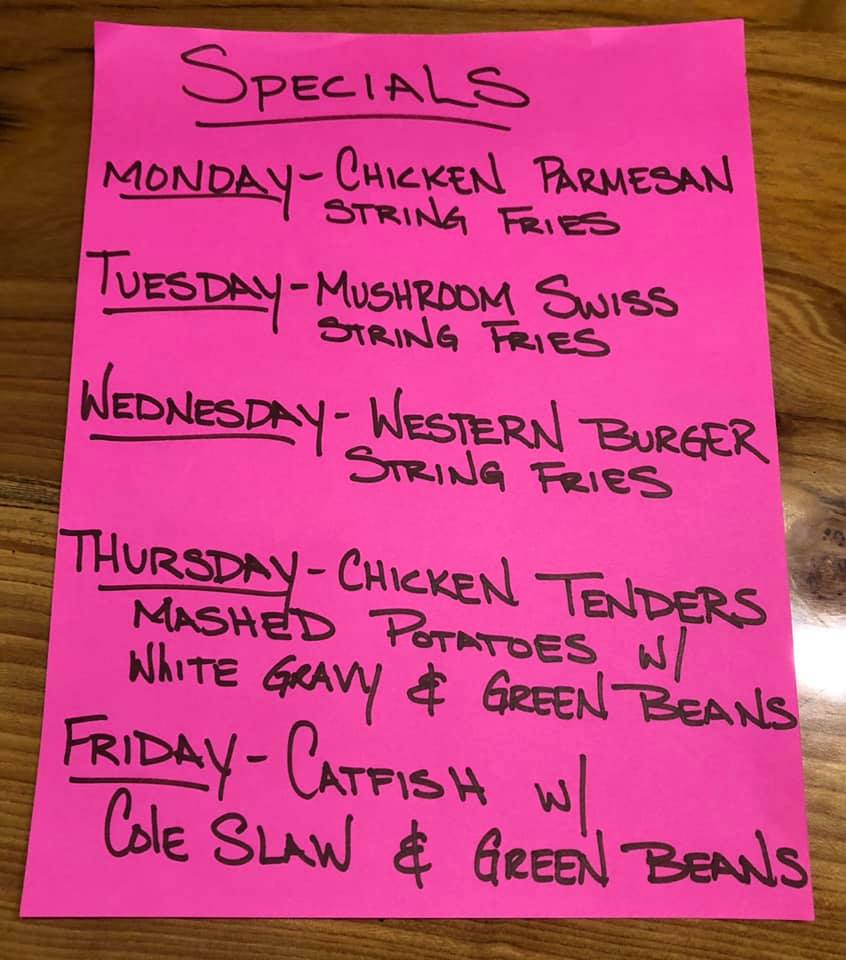 SPECIALS
MONDAY - CHICKEN PARMESAN
STRING FRIES
TUESDAY - MUSHROOM SWISS
STRING FRIES
WEDNESDAY - WESTERN BURGER
STRING FRIES
THURSDAY - CHICKEN TENDERS
MASHED POTATOES W/
WHITE GRAVY & GREEN BEANS
FRIDAY - CATFISH W/
COLE SLAW & GREEN BEANS